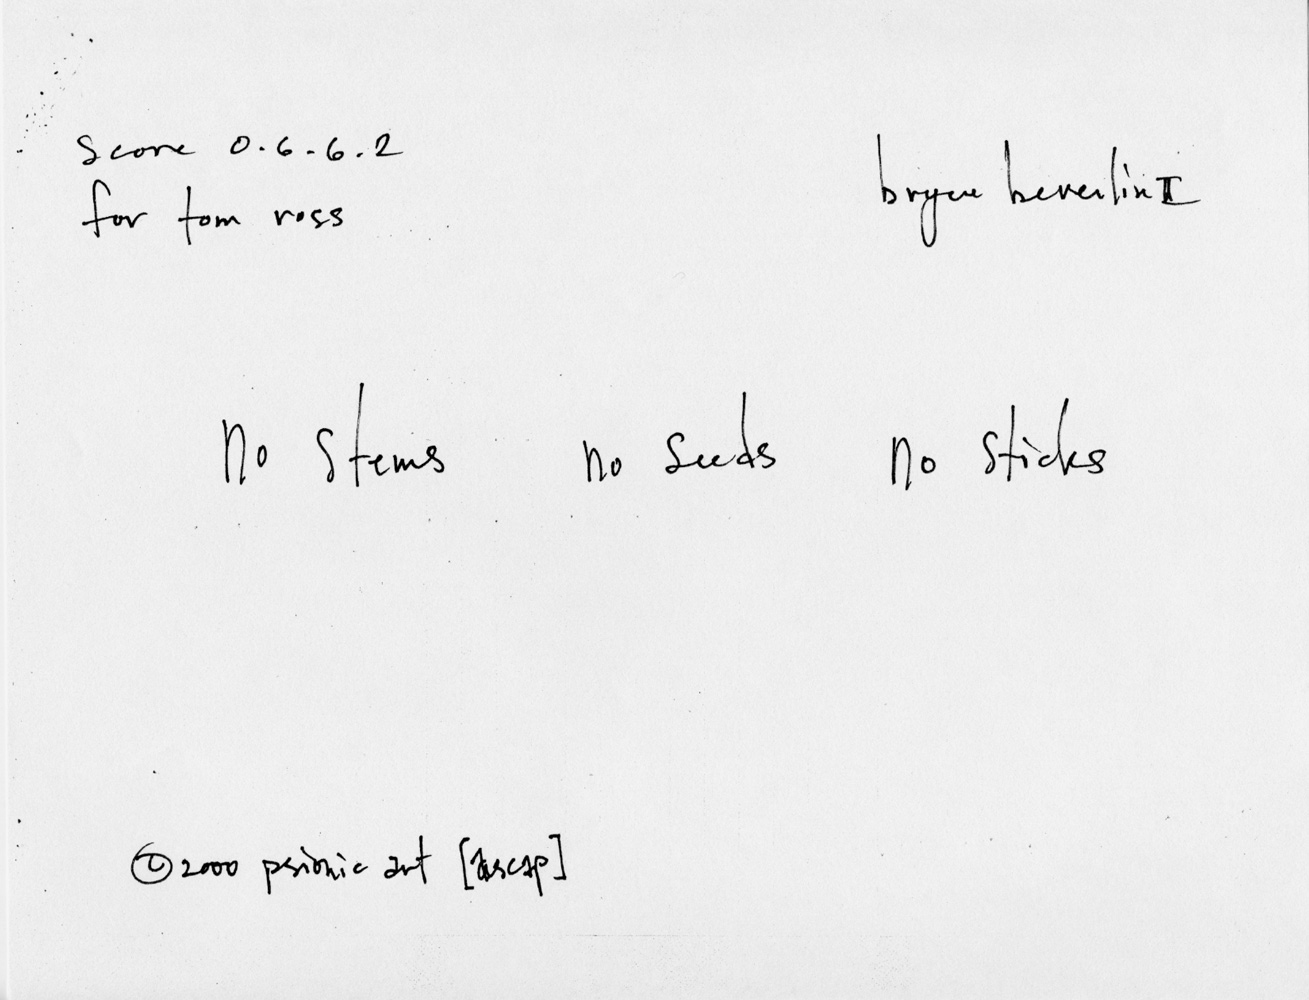 Score 0.6.6.2
for tom ross
bryce beverlin II
no stems no seeds no sticks
©2000 psionic art [ascap]